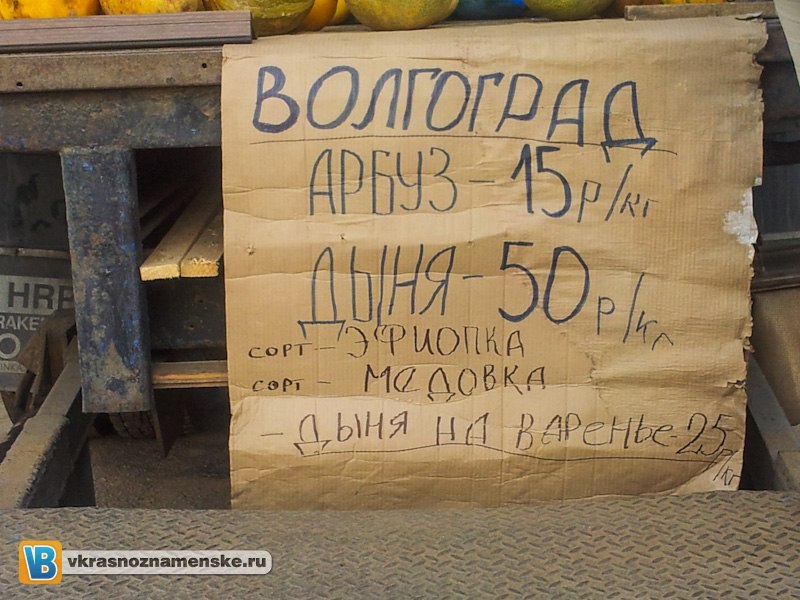 ВОЛГОГРАД
АРБУЗ - 15 Р/КГ
ДЫНЯ - 50 Р/КГ
СОРТ - ЭФИОПКА
СОРТ - МЕДОВКА
- ДЫНЯ НА ВАРЕНЬЕ - 25 Р/КГ
HRB
RAKE
O
vkrasnoznamenske.ru